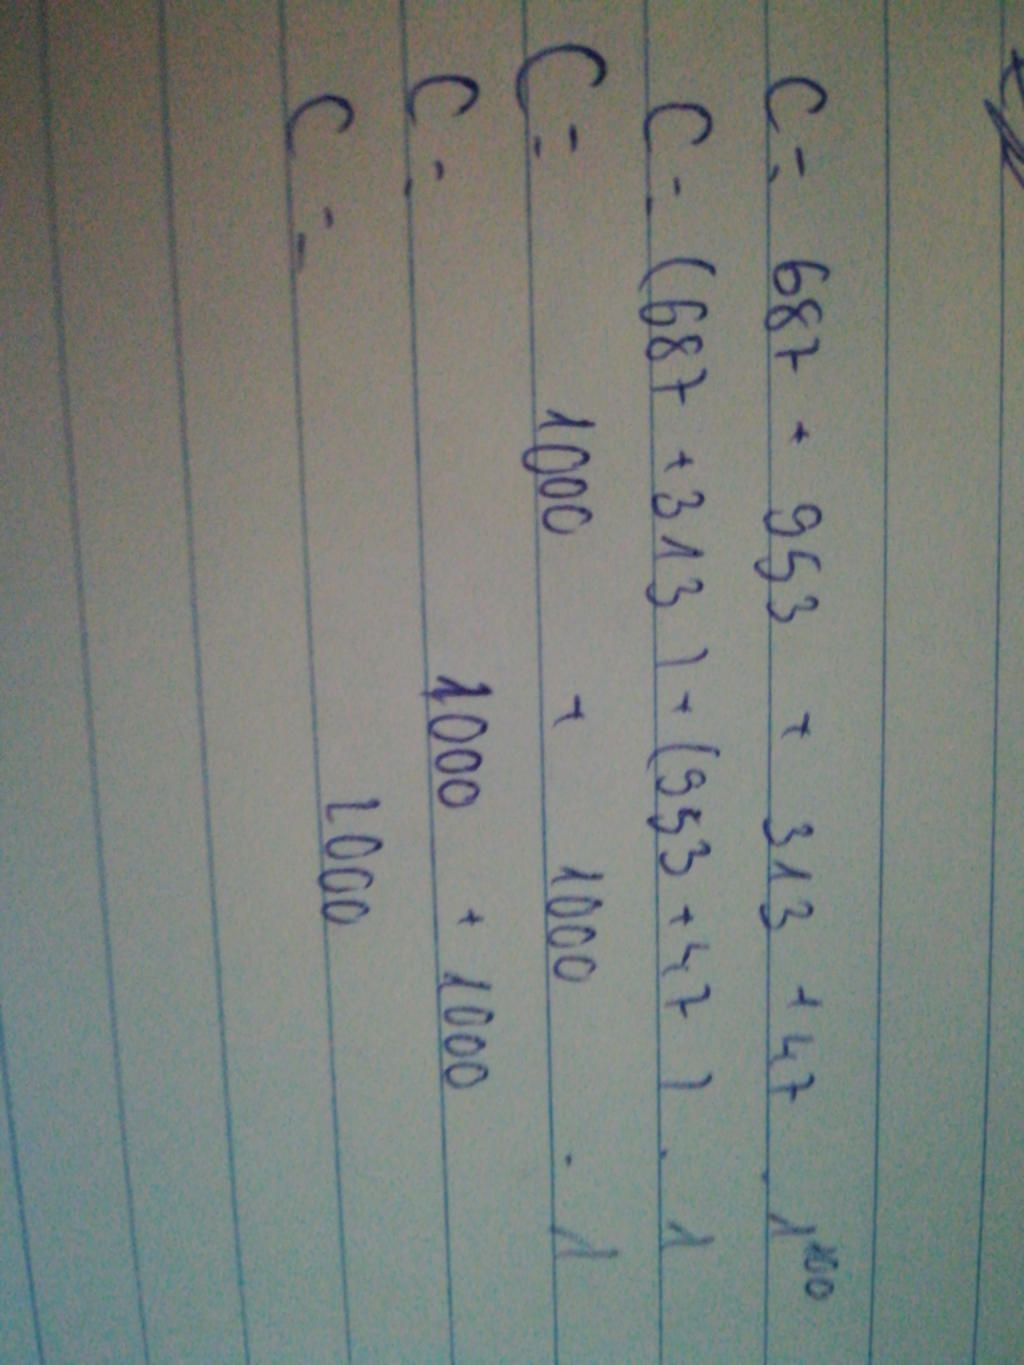 C = 687 + 953 + 313 + 47 . 1¹⁰⁰
C = (687 + 313) + (953 + 47) . 1
C = 1000 + 1000 . 1
C = 1000 + 1000
C = 1000